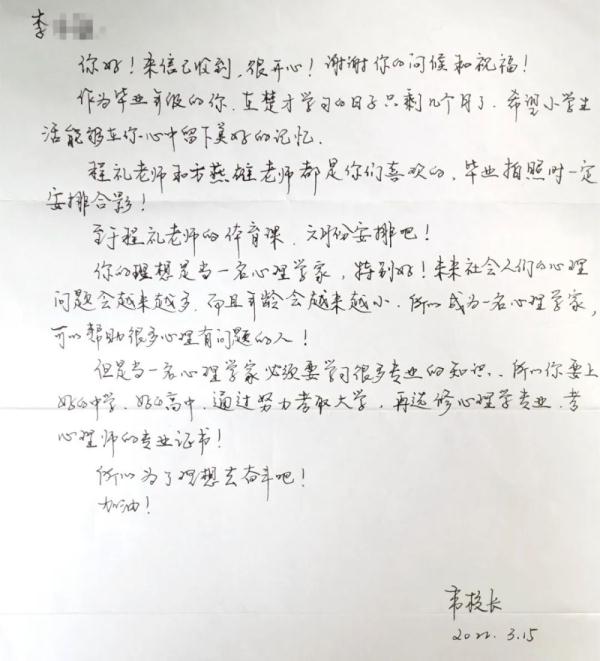 李
你好！来信已收到，很开心！谢谢你的问候和祝福！
作为毕业年级的你，在楚才学习的日子只剩几个月了，希望小学生
活能够在你心中留下美好的记忆.
程礼老师和方燕雄老师都是你们喜欢的，毕业拍照时一定
安排合影！
至于程礼老师的体育课，六月份安排吧！
你的理想是当一名心理学家，特别好！未来社会人们的心理
问题会越来越多，而且年龄会越来越小.所以成为一名心理学家，
可以帮助很多心理有问题的人！
但是当一名心理学家必须要学习很多专业的知识.、所以你要上
好的中学、好的高中，通过努力考取大学，再选修心理学专业，考
心理师的专业证书！
所以为了理想去奋斗吧！
加油！
韦校长
2022.3.15